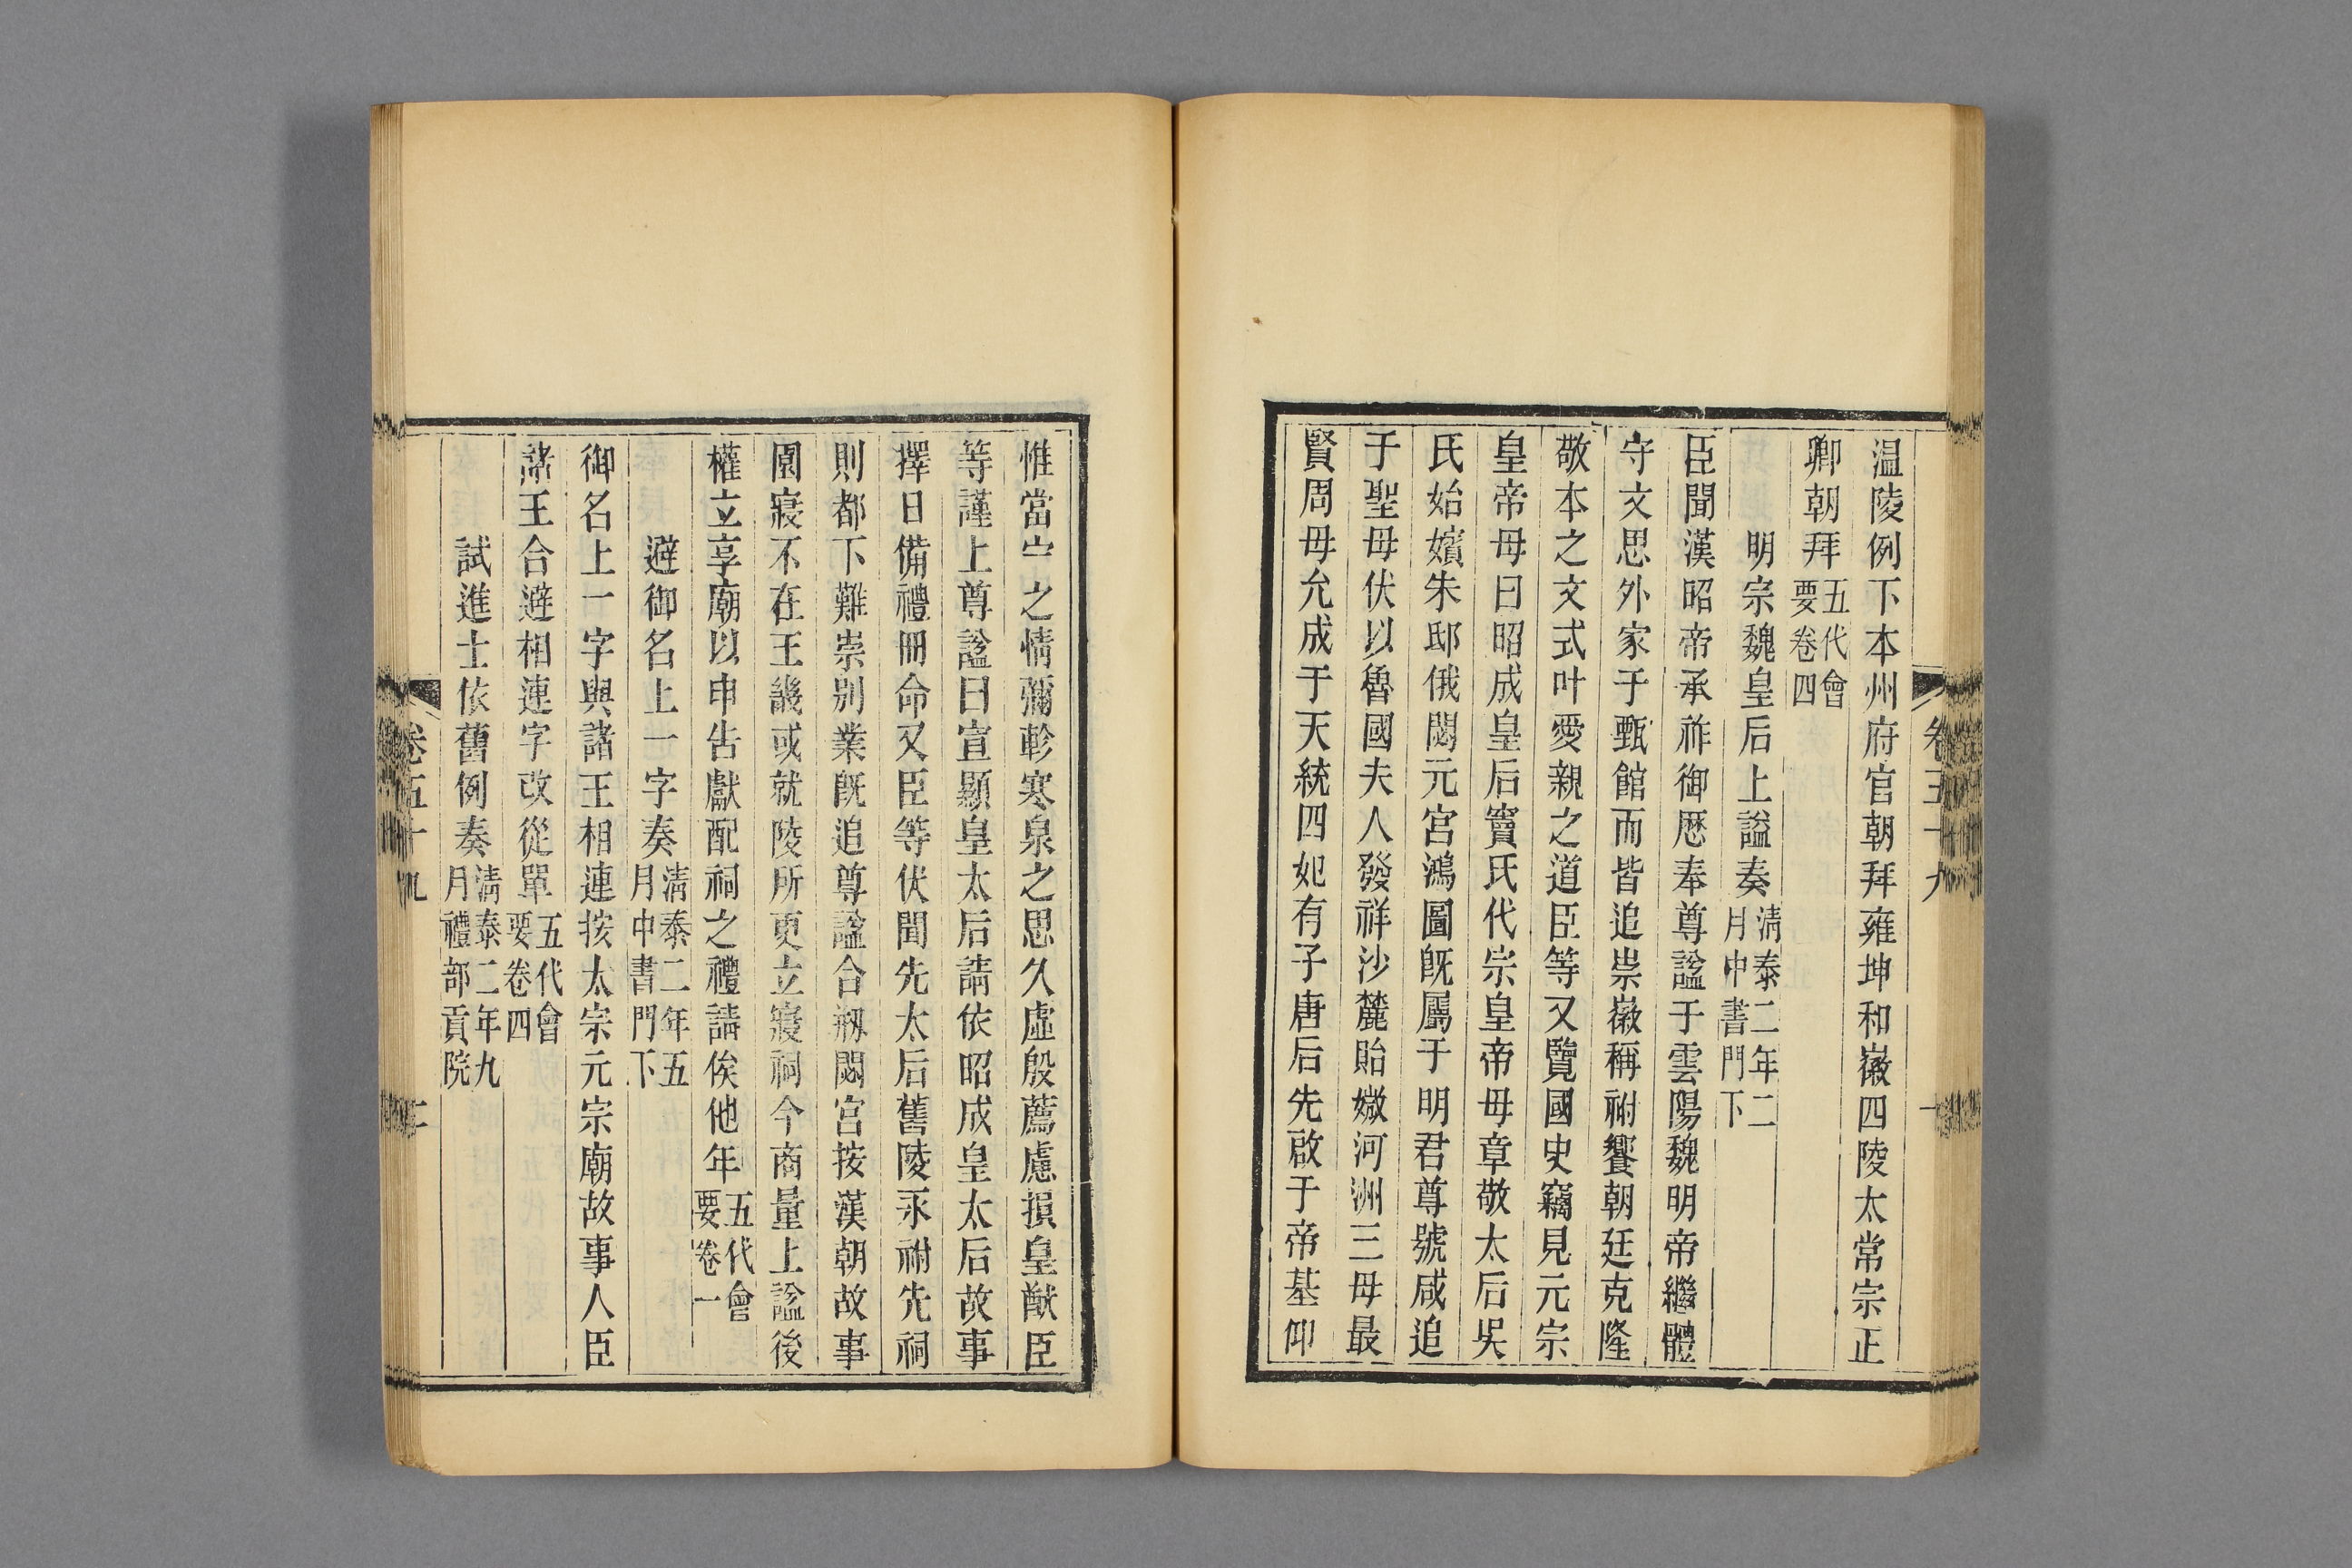 温陵例下本州府官朝拜雍坤和徽四陵太常宗正
卿朝拜五代會要卷四
明宗魏皇后上諡奏清泰二年二月中書門下
臣聞漢昭帝承祚御厯奉尊諡于雲陽魏明帝繼體
守文思外家于甄館而皆追祟徽稱祔饗朝廷克隆
敬本之文式叶愛親之道臣等又覽國史竊見元宗
皇帝母曰昭成皇后竇氏代宗皇帝母章敬太后吳
氏始嬪朱邸俄閟元宮鴻圖旣屬于明君尊號咸追
于聖母伏以魯國夫人發祥沙麓貽媺河洲三母最
賢周母允成于天統四妃有子唐后先啟于帝基仰
惟當宁之情彌軫寒泉之思久虛殷薦慮損皇猷臣
等謹上尊諡曰宣顯皇太后請依昭成皇太后故事
擇日備禮冊命又臣等伏聞先太后舊陵永祔先祠
則都下難崇别業旣追尊諡合剏閟宮按漢朝故事
園寢不在王畿或就陵所更立寢祠今商量上諡後
權立享廟以申告獻配祠之禮請俟他年五代會要卷一
避御名上一字奏清泰二年五月中書門下
御名上一字與諸王相連按太宗元宗廟故事人臣
諸王合避相連字改從單五代會要卷四
試進士依舊例奏清泰二年九月禮部貢院
卷五十九
二